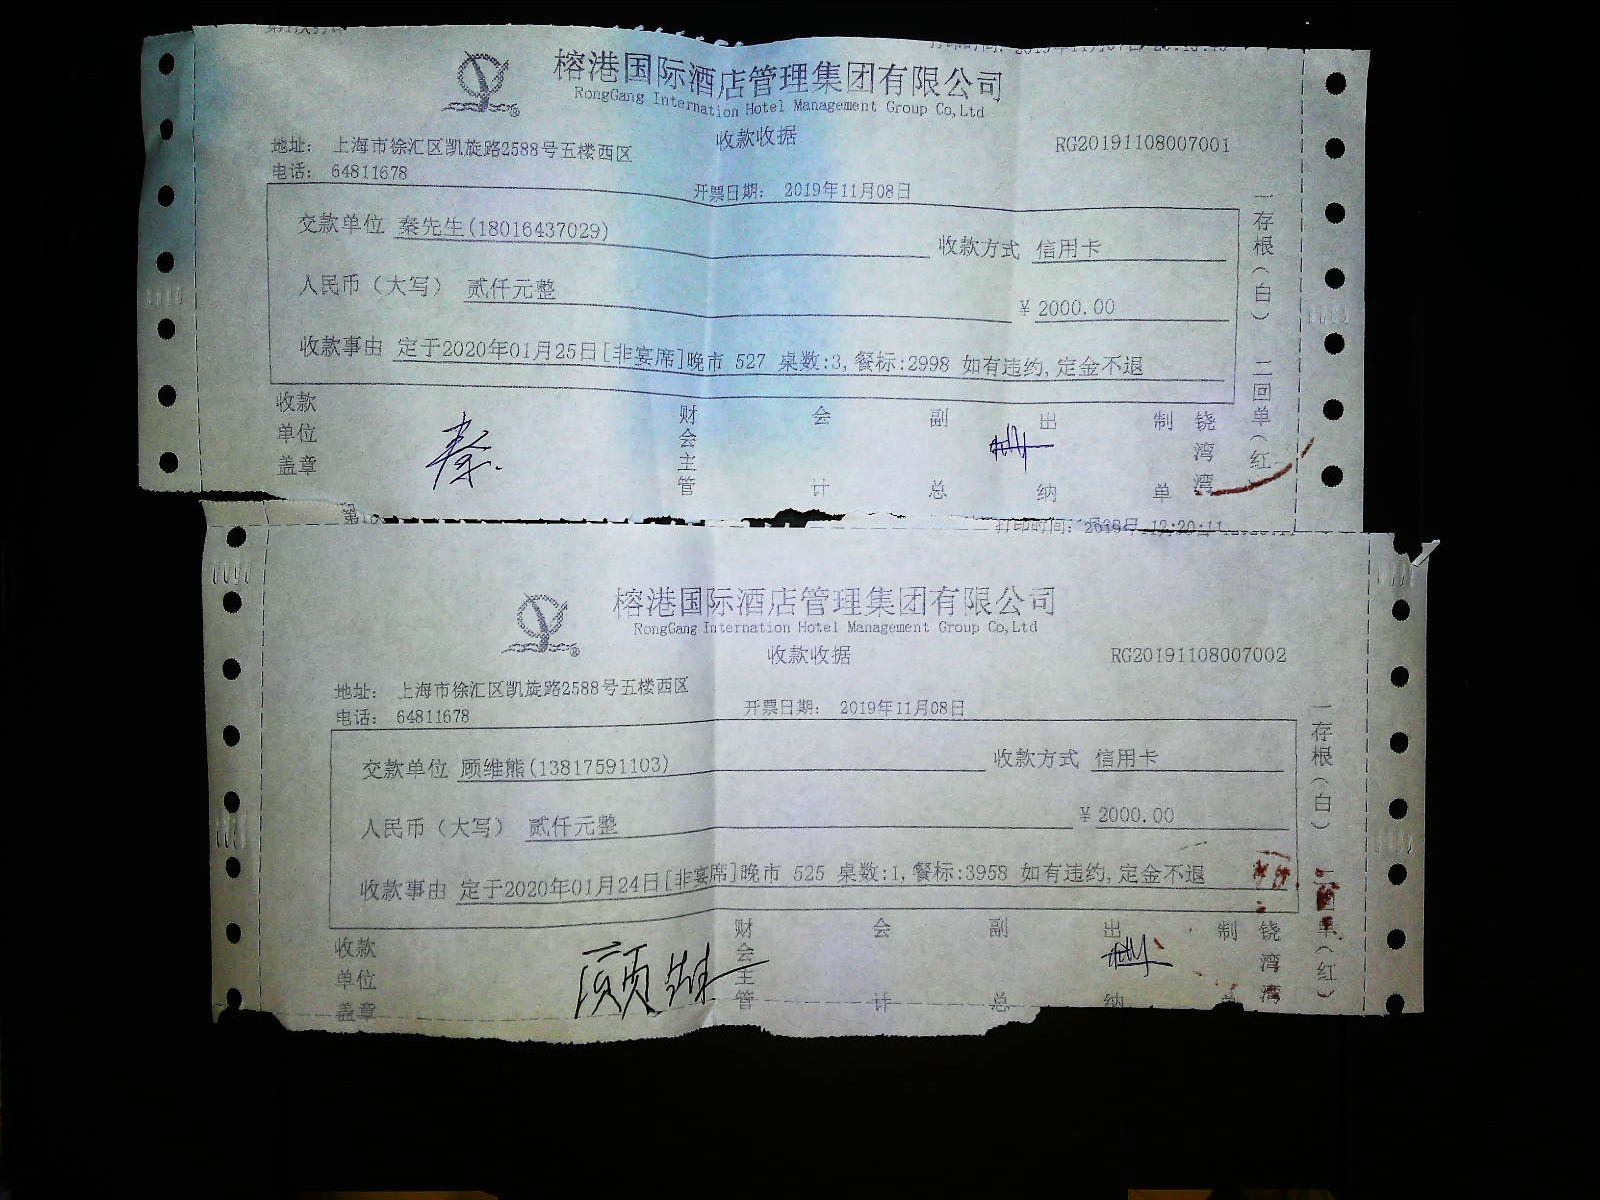 榕港国际酒店管理集团有限公司
RongGang Internation Hotel Management Group Co,Ltd
收款收据
RG20191108007001
地址： 上海市徐汇区凯旋路2588号五楼西区
电话： 64811678
开票日期： 2019年11月08日
交款单位 秦先生(18016437029)
收款方式 信用卡
人民币（大写） 贰仟元整
¥ 2000.00
收款事由 定于2020年01月25日[非宴席]晚市 527 桌数:3,餐标:2998 如有违约,定金不退
一存根（白） 二回单（红
收款单位盖章
秦
财会主管
会计
副总
出纳
制单
铙湾湾
打印时间:
12:20:11
榕港国际酒店管理集团有限公司
RongGang Internation Hotel Management Group Co,Ltd
收款收据
RG20191108007002
地址： 上海市徐汇区凯旋路2588号五楼西区
电话： 64811678
开票日期： 2019年11月08日
交款单位 顾维熊(13817591103)
收款方式 信用卡
人民币（大写） 贰仟元整
¥ 2000.00
收款事由 定于2020年01月24日[非宴席]晚市 525 桌数:1,餐标:3958 如有违约,定金不退
一存根（白） 二回单（红）
收款单位盖章
顾
财会主管
会计
副总
出纳
制单
铙湾湾